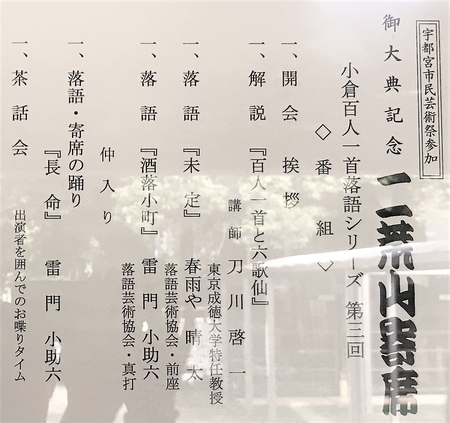 宇都宮市民芸術祭参加
御大典記念
二荒山寄席
小倉百人一首落語シリーズ 第三回
◇番組◇
一、開会挨拶
一、解説『百人一首と六歌仙』
講師 刀川啓一
東京成徳大学特任教授
一、落語『未定』 春雨や晴太
落語芸術協会・前座
一、落語『洒落小町』 雷門小助六
落語芸術協会・真打
仲入り
一、落語・寄席の踊り
『長命』 雷門小助六
一、茶話会 出演者を囲んでのお喋りタイム